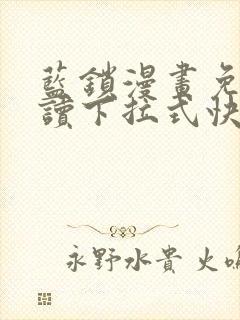 藍鎖漫畫免
讀下拉式快
永野水貴 火鳴